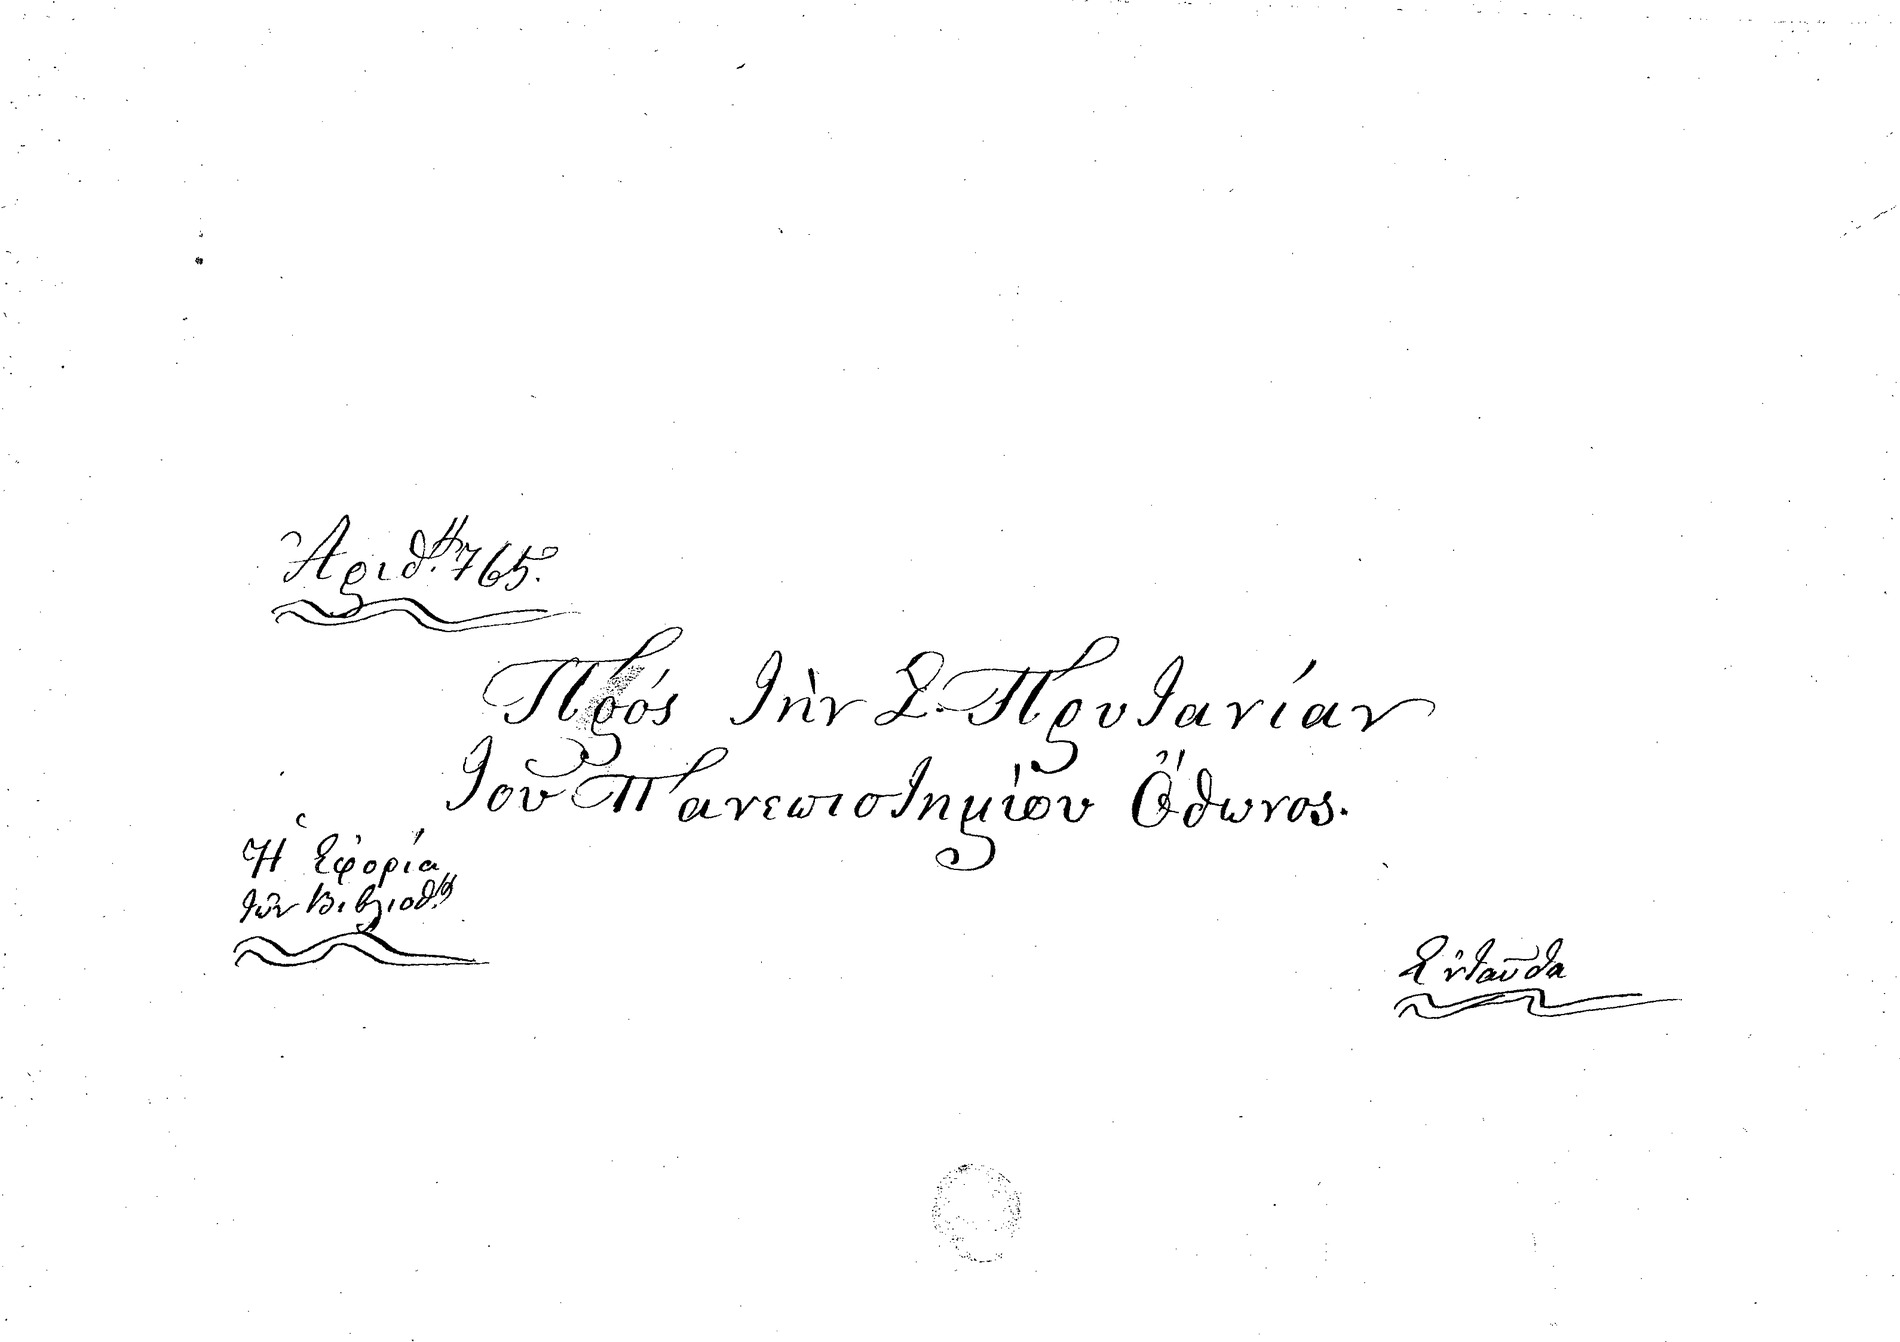 Ἀριθ. 765.
Πρὸς τὴν Σ. Πρυτανίαν
τοῦ Πανεπιστημίου Ὄθωνος.
Ἡ Ἐφορία
τῶν Βιβλιοθ.
Ἐνταῦθα